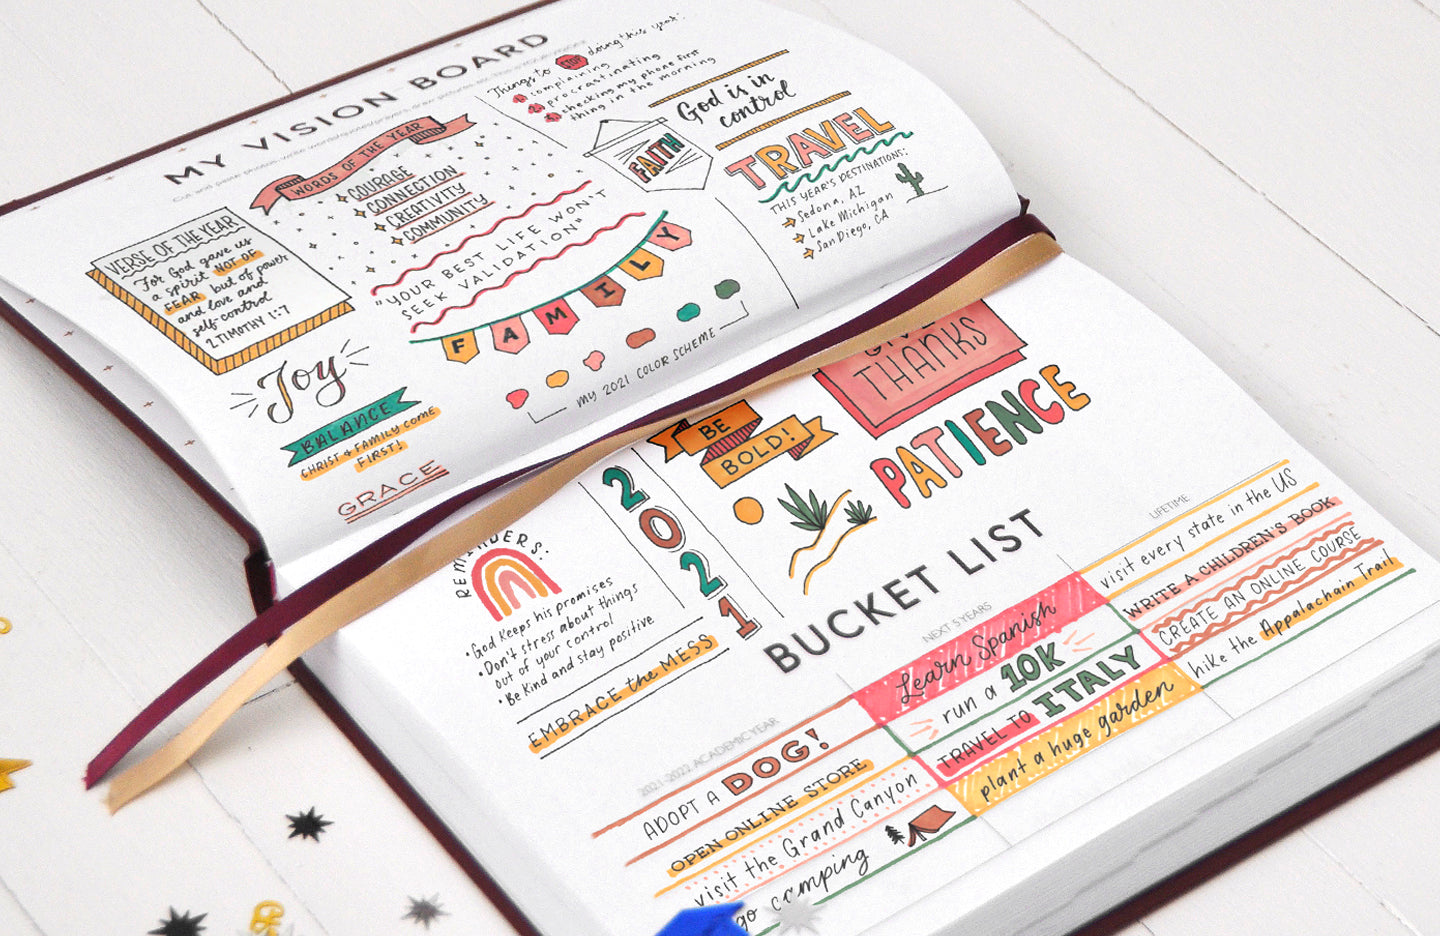 MY VISION BOARD
Things to STOP doing this year:
1. complaining
2. procrastinating
3. checking my phone first
thing in the morning
WORDS OF THE YEAR
COURAGE
CONNECTION
CREATIVITY
COMMUNITY
VERSE OF THE YEAR
For God gave us
a spirit NOT OF
FEAR but of power
and love and
self-control
2 TIMOTHY 1:7
"YOUR BEST LIFE WON'T
SEEK VALIDATION"
FAITH
God is in
control
TRAVEL
THIS YEAR'S DESTINATIONS:
Sedona, AZ
Lake Michigan
San Diego, CA
FAMILY
MY 2021 COLOR SCHEME
Joy
BALANCE
CHRIST & FAMILY COME
FIRST!
GRACE
REMINDERS:
• God keeps his promises
• Don't stress about things
out of your control
• Be kind and stay positive
EMBRACE the MESS
2021
BE
BOLD!
THANKS
PATIENCE
BUCKET LIST
2021-2022 ACADEMIC YEAR
ADOPT A DOG!
OPEN ONLINE STORE
visit the Grand Canyon
go camping
NEXT 5 YEARS
Learn Spanish
run a 10K
TRAVEL TO ITALY
plant a huge garden
LIFETIME
visit every state in the US
WRITE A CHILDREN'S BOOK
CREATE AN ONLINE COURSE
hike the Appalachain Trail